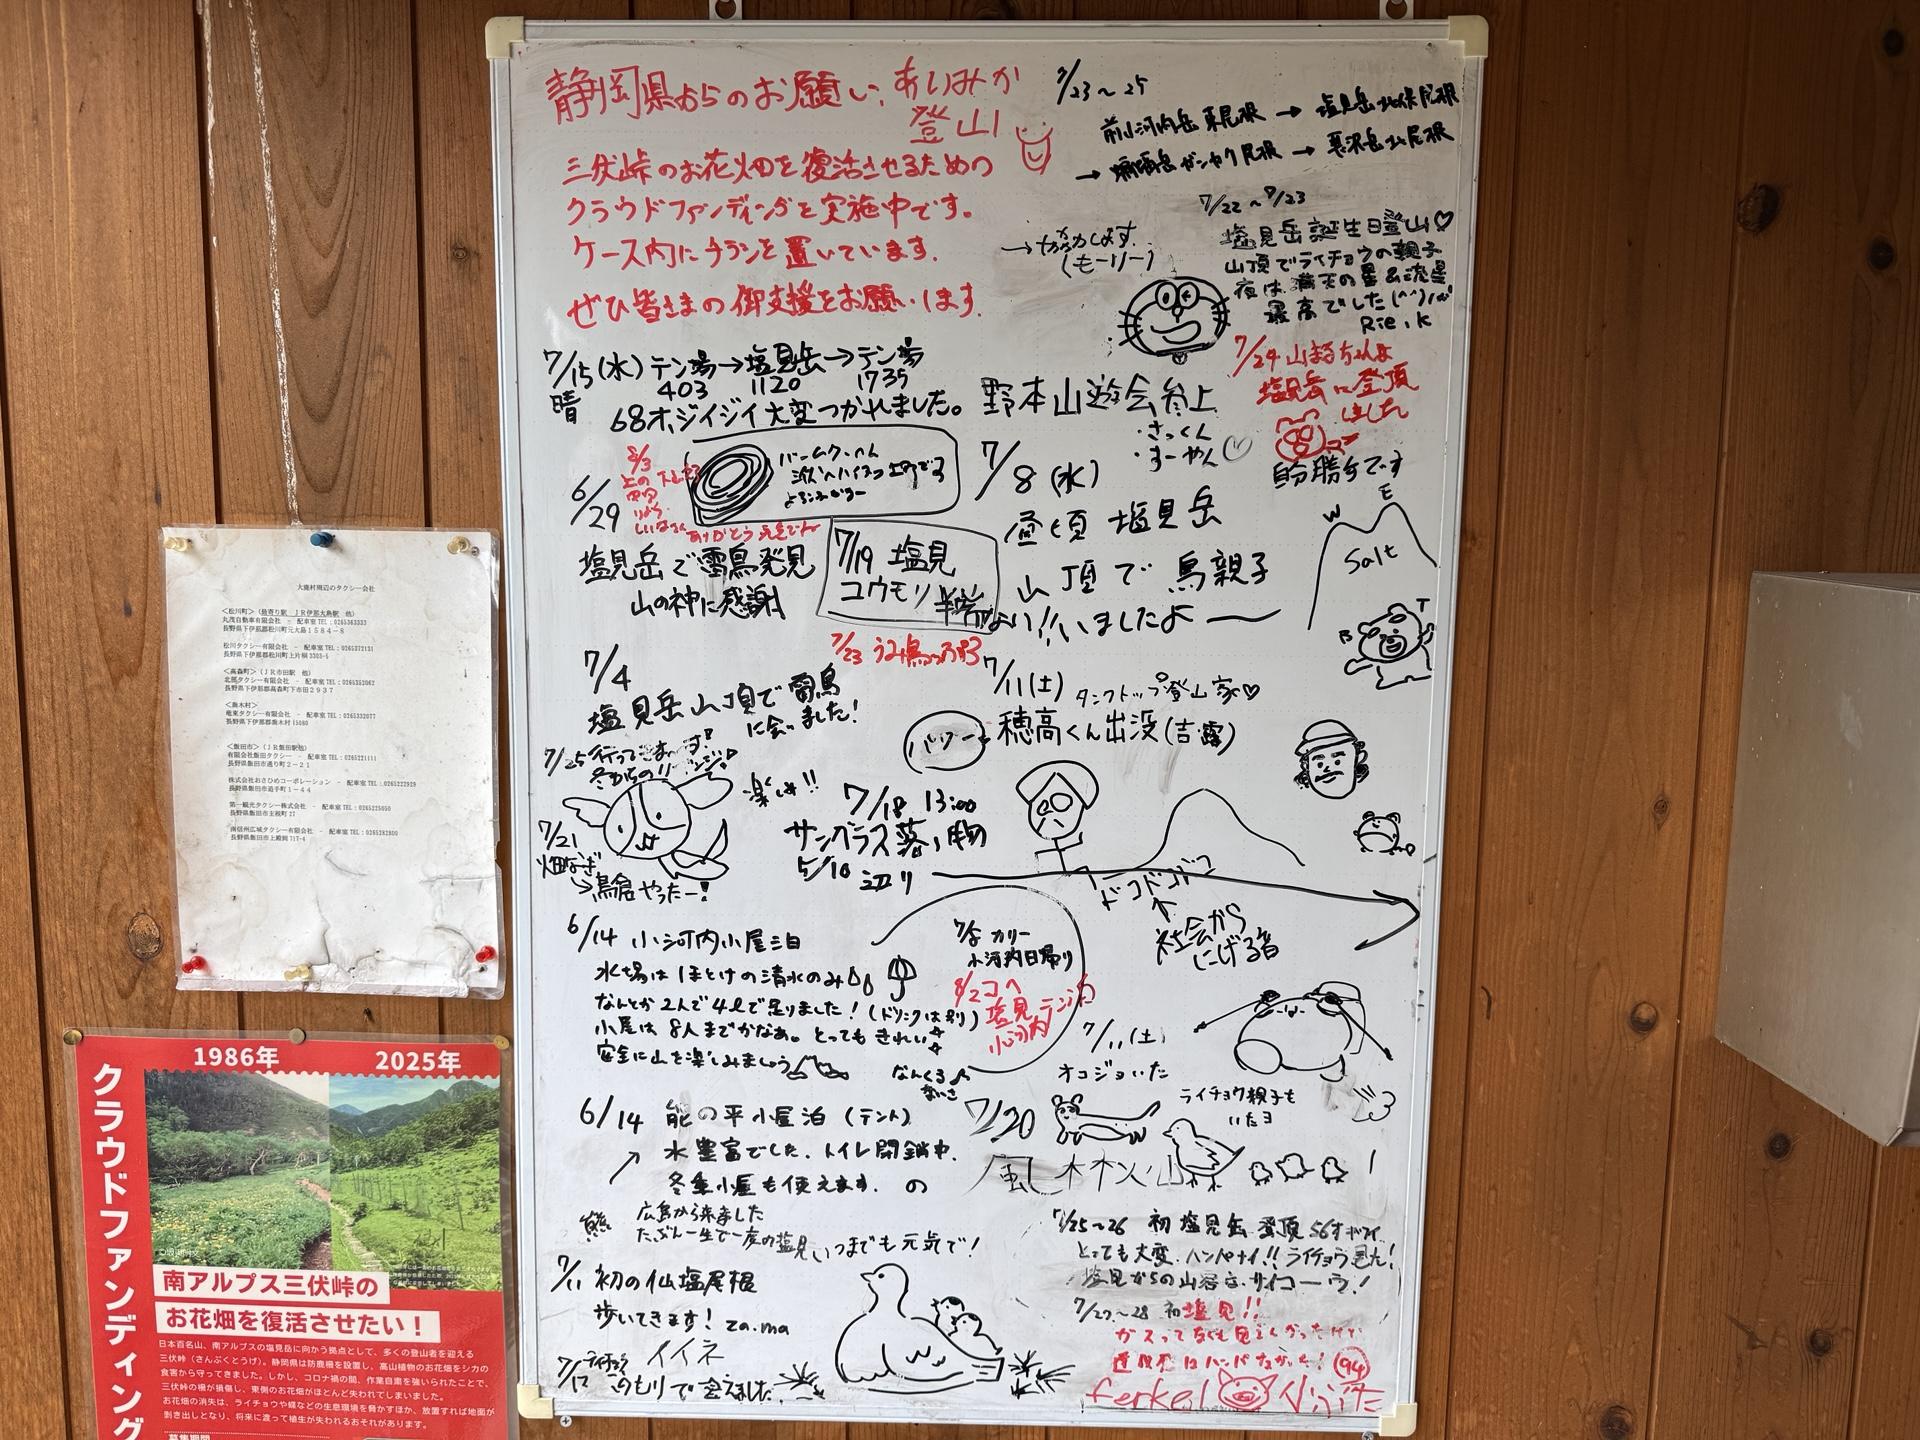 静岡県からのお願い
登山
三伏峠のお花畑を復活させるための
クラウドファンディングを実施中です。
ケース内にチラシを置いています。
ぜひ皆さまの御支援をお願いします。
7/23～25
前小河内岳東尾根→塩見岳北俣尾根
→蝙蝠岳ガンヤク尾根→悪沢岳北尾根
(もーリー)
7/22～7/23
塩見岳誕生日登山♡
山頂でライチョウの親子
夜は満天の星&流星
最高でした(^^)
Rie.K
7/24 山まるちゃんよ
塩見岳に登頂
しました
自分勝ちです
7/15(水)テン場→塩見岳→テン場
晴 403 1120 1735
68オジイジイ大変つかれました。
バームクーヘン
8/3
ありがとう
野本山遊会参上
・さっくん
・すーやん♡
6/29
塩見岳で雷鳥発見
山の神に感謝
7/19 塩見
コウモリ
7/23
7/8(水)
昼頃 塩見岳
山頂で 鳥親子
いましたよ〜
W E
Salt
7/4
塩見岳山頂で雷鳥
に会いました!
7/11(土) タンクトップ登山家♡
穂高くん出没(吉露)
パワー
7/25 行ってきまーす!
楽しみ!!
7/21
→鳥倉やったー!
7/18 13:00
サングラス落し物
5/10 辺り
ドコドコドコ
社会から
にげる者
6/14 小河内小屋泊
水場はほとけの清水のみ
なんとか2人で4ℓで足りました!(ドリンクは別)
小屋は8人までかなぁ。とってもきれい
安全に山を楽しみましょう
なんくる
ないさ
カリー
小河内日帰り
8/2
塩見
小河内
7/11(土)
オコジョいた
ライチョウ親子も
いたヨ
6/14 熊の平小屋泊(テント)
水豊富でした。トイレ閉鎖中.
冬季小屋も使えます.
広島から来ました
たぶん一生で一度の塩見
いつまでも元気で!
7/20
風林火山
7/11 初の仙塩尾根
歩いてきます! za.ma
イイネ
7/17 ライチョウ
こうもりで会えました.
7/25～26 初塩見岳登頂 56才
とっても大変.ハンパナイ!!ライチョウ見た!
塩見からの山容はサイコーウ!
7/27～28 初塩見!!
94
ferkel
大鹿村周辺のタクシー会社
<松川町>(最寄り駅 JR伊那大島駅 他)
丸茂自動車有限会社 - 配車室TEL:0265363333
長野県下伊那郡松川町元大島1584-8
松川タクシー有限会社 - 配車室TEL:0265372131
長野県下伊那郡松川町上片桐3303-5
<高森町>(JR市田駅 他)
北部タクシー有限会社 - 配車室TEL:0265352062
長野県下伊那郡高森町下市田2937
<喬木村>
竜東タクシー有限会社 - 配車室TEL:0265332077
長野県下伊那郡喬木村15080
<飯田市>(JR飯田駅他)
有限会社飯田タクシー - 配車室TEL:0265221111
長野県飯田市通り町2-21
株式会社おさひめコーポレーション - 配車室TEL:0265222929
長野県飯田市追手町1-44
第一観光タクシー株式会社 - 配車室TEL:0265225050
長野県飯田市主税町27
南信州広域タクシー有限会社 - 配車室TEL:0265282800
長野県飯田市上殿岡717-4
1986年 2025年
クラウドファンディング
南アルプス三伏峠の
お花畑を復活させたい!
日本百名山、南アルプスの塩見岳に向かう拠点として、多くの登山者を迎える
三伏峠(さんぷくとうげ)。静岡県は防鹿柵を設置し、高山植物のお花畑をシカの
食害から守ってきました。しかし、コロナ禍の間、作業自粛を強いられたことで、
三伏峠の柵が損傷し、東側のお花畑がほとんど失われてしまいました。
お花畑の消失は、ライチョウや蝶などの生息環境を脅かすほか、放置すれば地面が
剥き出しとなり、将来に渡って植生が失われるおそれがあります。
募集期間